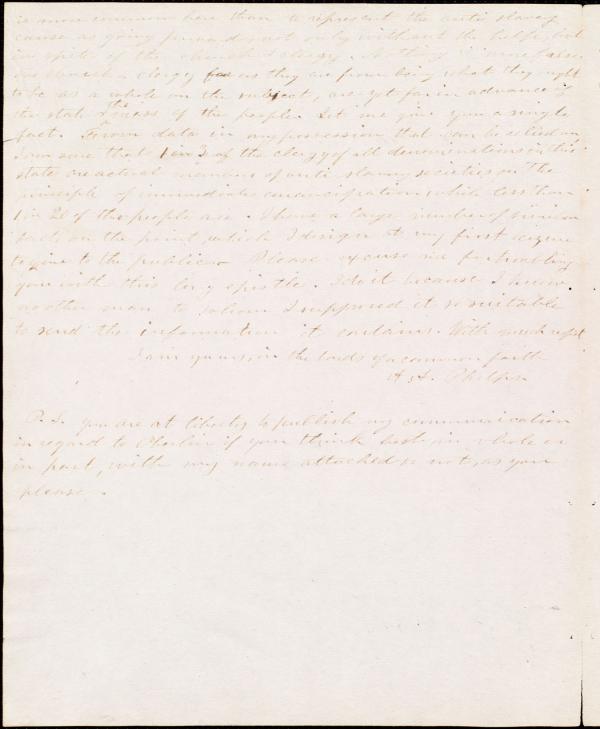 is more common here than to represent the anti slavery
cause as going forward, not only without the help, but
in spite of the church & clergy. Nothing is more false.
The church & clergy far as they are from being what they ought
to be as a whole on the subject, are yet far in advance of
the state & the mass of the people. Let me give you a single
fact. From data in my possession that can be relied on,
I am sure that 1 in 3 of the clergy of all denominations in this
state are actual members of anti slavery societies on the
principle of immediate emancipation, while less than
1 in 20 of the people are. I have a large number of similar
facts on the point, which I design at my first leisure
to give to the public. Please excuse me for troubling
you with this long epistle. I do it because I know
no other man to whom I supposed it so suitable
to send the information it contains. With much respt
I am yours, in the bonds of a common faith
A. A. Phelps
P.S. you are at liberty to publish my communication
in regard to if you think best in whole or
in part, with my name attached or not, as you
please.